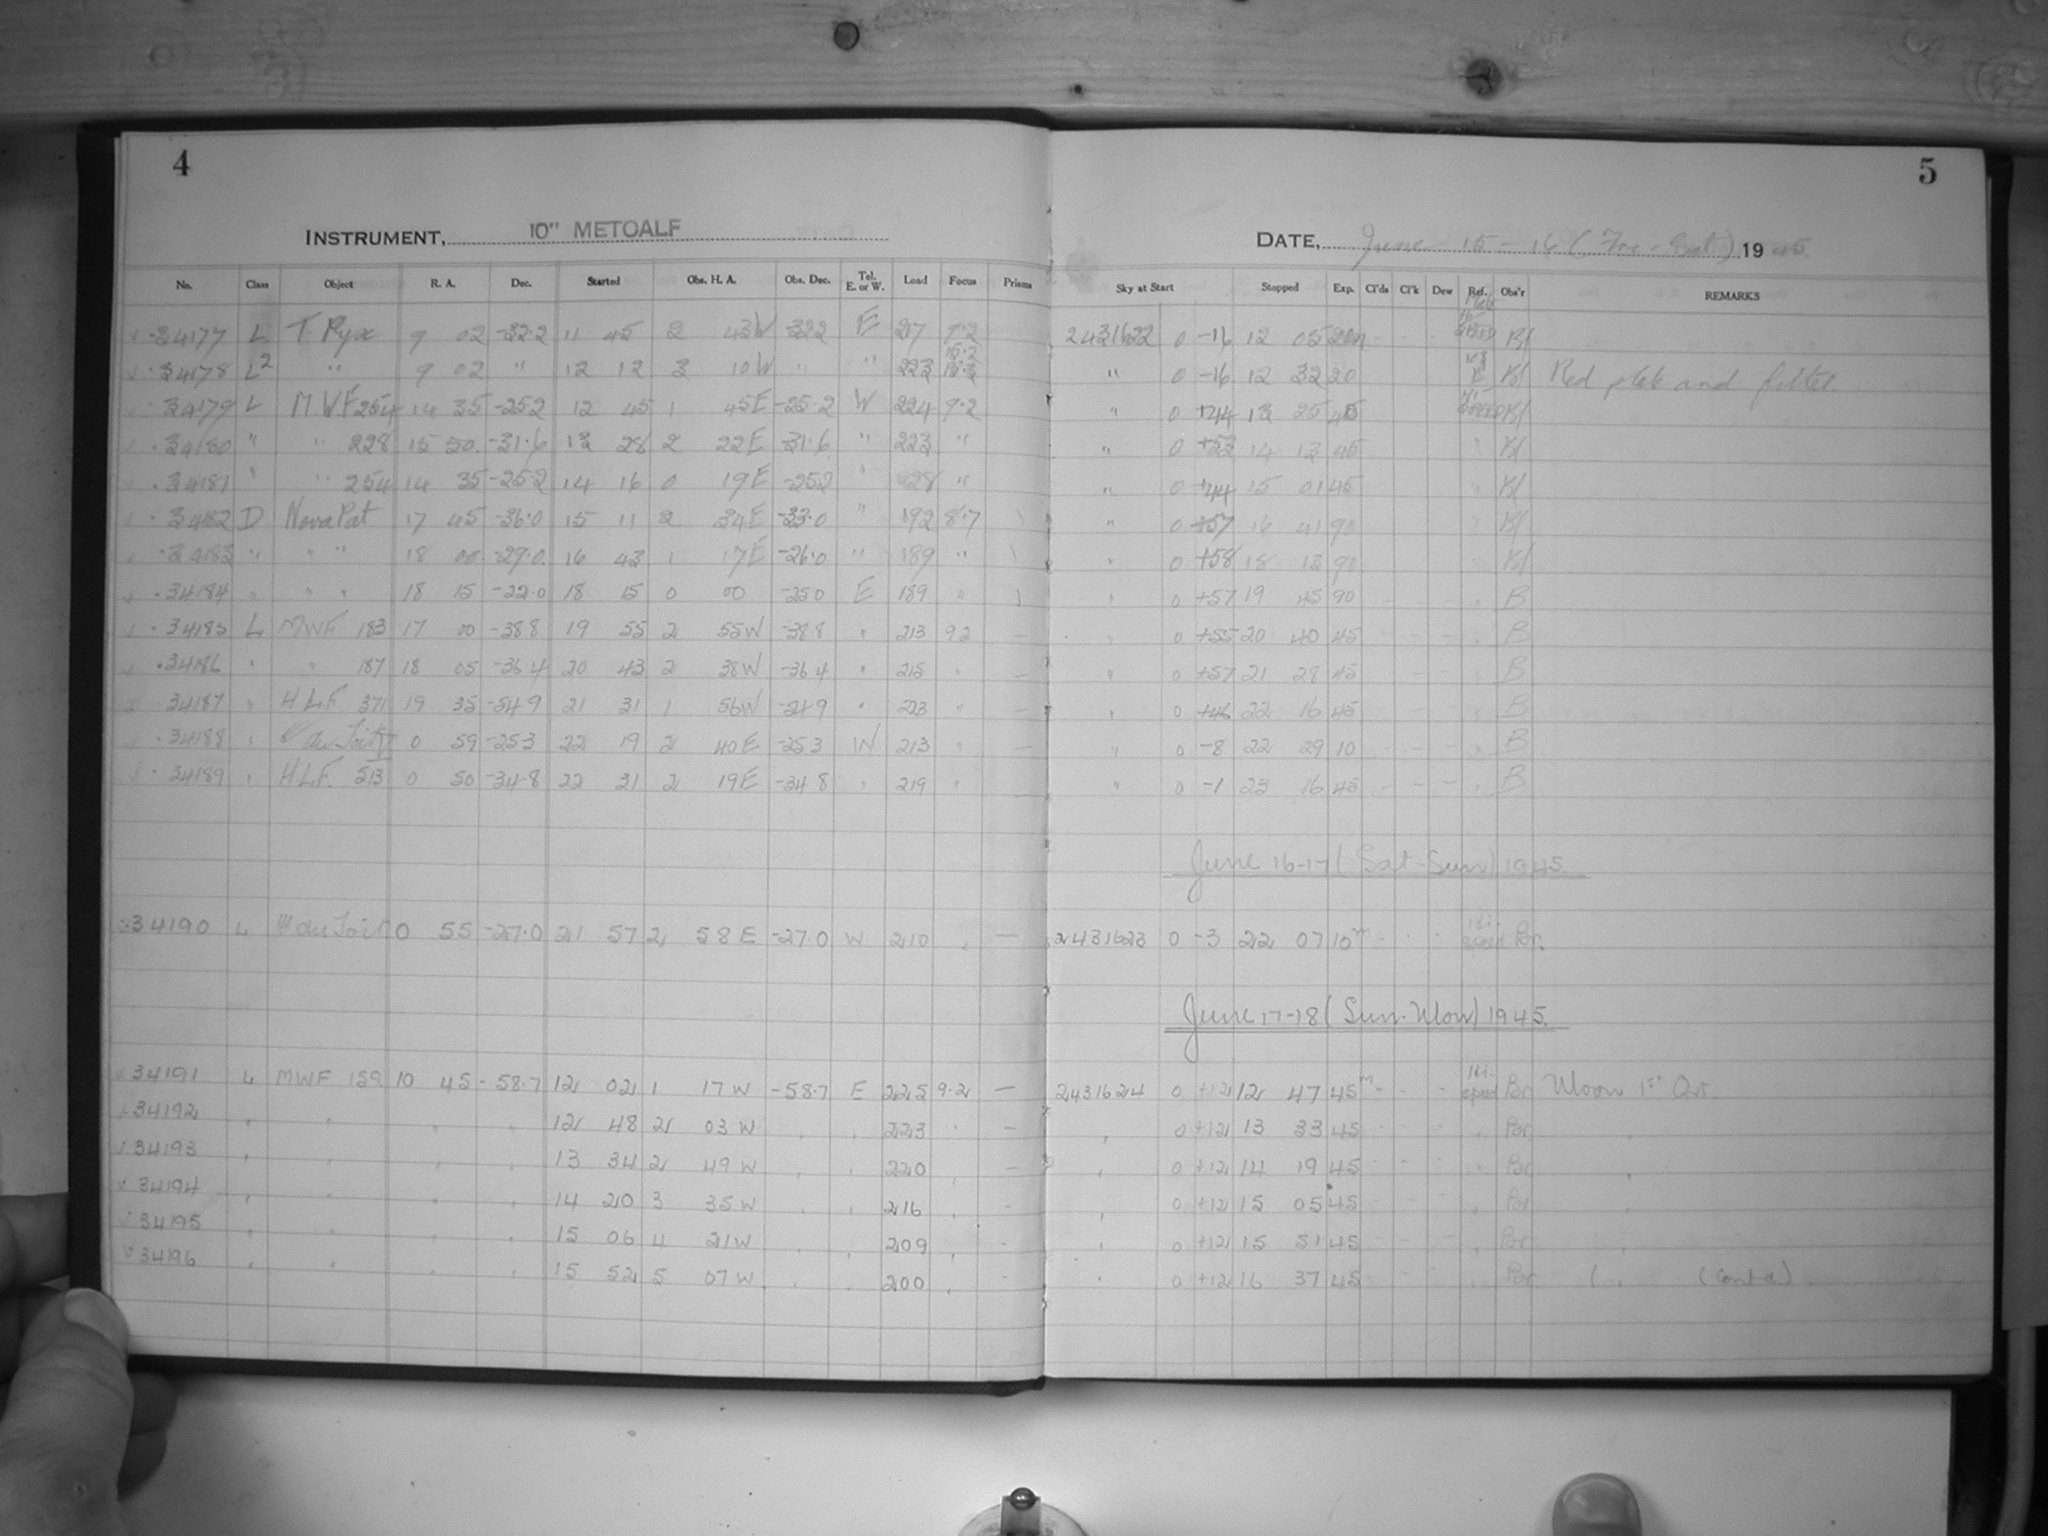 4
INSTRUMENT, 10" METCALF
No. Class Object R. A. Dec. Started Obs. H. A. Obs. Dec. Tel. E. or W. Load Focus Prisms
34177 L T Pyx 9 02 -32.2 11 45 2 43W -322 E 217 9.2
34178 L2 " 9 02 " 12 12 3 10W " " 223
34179 L M.W.F 254 14 35 -252 12 45 1 45E -25.2 W 224 9.2
34180 " " 228 15 50 -31.6 13 28 2 22E -31.6 " 223 "
34181 " " 254 14 35 -252 14 16 0 19E -252 " 228 "
34182 D Nova 17 45 -36.0 15 11 2 34E -33.0 " 192 8.7 )
34183 " " " 18 00 -29.0 16 43 1 17E -26.0 " 189 " \
34184 " " " 18 15 -22.0 18 15 0 00 -250 E 189 " )
34185 L MWF 183 17 00 -388 19 55 2 55W -388 " 213 92 —
34186 " " 187 18 05 -364 20 43 2 38W -364 " 215 " —
34187 " H.L.F. 371 19 35 -549 21 31 1 56W -549 " 223 " —
34188 " du Toit 0 59 -253 22 19 2 40E -253 W 213 " —
34189 " H.L.F. 513 0 50 -34.8 22 31 2 19E -348 " 219 " —
34190 L du Toit 0 55 -27.0 21 57 2 58E -27.0 W 210 " —
34191 L MWF 159 10 45 -58.7 12 02 1 17W -58.7 E 225 9.2 —
34192 " " " " 12 48 2 03W " " 223 " —
34193 " " " " 13 34 2 49W " " 220 —
34194 " " " " 14 20 3 35W " " 216 " -
34195 " " " " 15 06 4 21W " " 209 " -
34196 " " " " 15 52 5 07W " " 200 " -
5
DATE, June 15-16 (Fri-Sat) 1945
Sky at Start Stopped Exp. Cl'ds Cl'k Dew Ref. Obs'r REMARKS
2431622 0 -16 12 05 20m
" 0 -16 12 32 20 Red plate and filter
" 0 +44 13 25 45
" 0 +53 14 13 45
" 0 +44 15 01 45
" 0 +57 16 41 90
" 0 +58 18 13 90
" 0 +57 19 45 90 B
" 0 +55 20 40 45 B
" 0 +57 21 28 45 B
" 0 +46 22 16 45 B
" 0 -8 22 29 10 B
" 0 -1 23 16 45 B
June 16-17 (Sat-Sun) 1945.
2431623 0 -3 22 07 10m Hi-speed Br.
June 17-18 (Sun-Mon) 1945.
2431624 0 +12 12 47 45m Hi-speed Br Moon 1st Qr.
" 0 +12 13 33 45 " Br "
" 0 +12 14 19 45 " Br "
" 0 +12 15 05 45 " Br "
" 0 +12 15 51 45 " Br "
" 0 +12 16 37 45 " Br ( " (Contd)